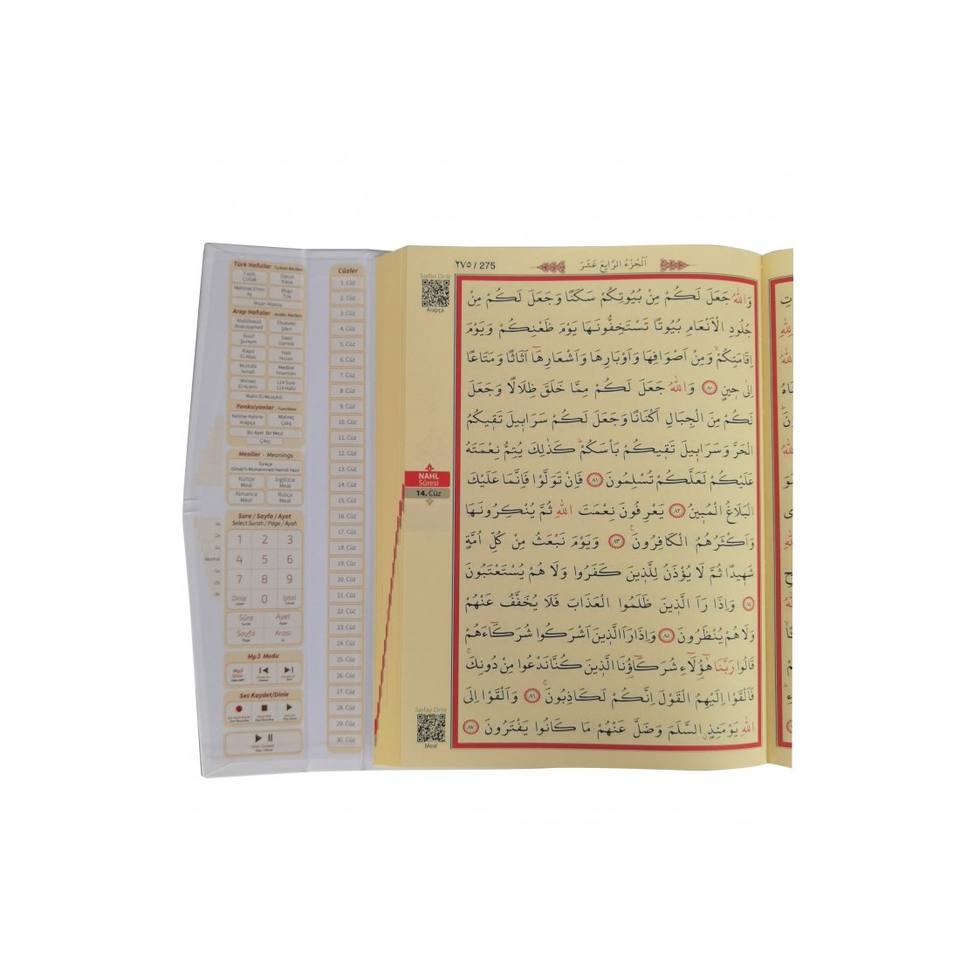 Türk Hafızlar
Arap Hafızlar
Fonksiyonlar - Functions
Mealler - Meanings
Türkçe
Kürtçe
Meal
İngilizce
Meal
Almanca
Meal
Rusça
Meal
Sure / Sayfa / Ayet
Select Surah / Page / Ayah
1 2 3
4 5 6
7 8 9
Dinle 0 İptal
Sûre Ayet
Sayfa Arası
Mp3 Modu
Ses Kaydet/Dinle
Cüzler
1. Cüz
2. Cüz
3. Cüz
4. Cüz
5. Cüz
6. Cüz
7. Cüz
8. Cüz
9. Cüz
10. Cüz
11. Cüz
12. Cüz
13. Cüz
14. Cüz
15. Cüz
16. Cüz
17. Cüz
18. Cüz
19. Cüz
20. Cüz
21. Cüz
22. Cüz
23. Cüz
24. Cüz
25. Cüz
26. Cüz
27. Cüz
28. Cüz
29. Cüz
30. Cüz
Sayfayı Dinle
Arapça
NAHL
Sûresi
14. Cüz
Sayfayı Dinle
Meal
٢٧٥ / 275
اَلْجُزْءُ الرَّابِعَ عَشَرَ
وَاللّٰهُ جَعَلَ لَكُمْ مِنْ بُيُوتِكُمْ سَكَنًا وَجَعَلَ لَكُمْ مِنْ
جُلُودِ الْاَنْعَامِ بُيُوتًا تَسْتَخِفُّونَهَا يَوْمَ ظَعْنِكُمْ وَيَوْمَ
اِقَامَتِكُمْۙ وَمِنْ اَصْوَافِهَا وَاَوْبَارِهَا وَاَشْعَارِهَٓا اَثَاثًا وَمَتَاعًا
اِلٰى حٖينٍ ﴿٨٠﴾ وَاللّٰهُ جَعَلَ لَكُمْ مِمَّا خَلَقَ ظِلَالًا وَجَعَلَ
لَكُمْ مِنَ الْجِبَالِ اَكْنَانًا وَجَعَلَ لَكُمْ سَرَابٖيلَ تَقٖيكُمُ
الْحَرَّ وَسَرَابٖيلَ تَقٖيكُمْ بَأْسَكُمْۜ كَذٰلِكَ يُتِمُّ نِعْمَتَهُ
عَلَيْكُمْ لَعَلَّكُمْ تُسْلِمُونَ ﴿٨١﴾ فَاِنْ تَوَلَّوْا فَاِنَّمَا عَلَيْكَ
الْبَلَاغُ الْمُبٖينُ ﴿٨٢﴾ يَعْرِفُونَ نِعْمَتَ اللّٰهِ ثُمَّ يُنْكِرُونَهَا
وَاَكْثَرُهُمُ الْكَافِرُونَ۟ ﴿٨٣﴾ وَيَوْمَ نَبْعَثُ مِنْ كُلِّ اُمَّةٍ
شَهٖيدًا ثُمَّ لَا يُؤْذَنُ لِلَّذٖينَ كَفَرُوا وَلَا هُمْ يُسْتَعْتَبُونَ
﴿٨٤﴾ وَاِذَا رَاَ الَّذٖينَ ظَلَمُوا الْعَذَابَ فَلَا يُخَفَّفُ عَنْهُمْ
وَلَا هُمْ يُنْظَرُونَ ﴿٨٥﴾ وَاِذَا رَاَ الَّذٖينَ اَشْرَكُوا شُرَكَٓاءَهُمْ
قَالُوا رَبَّنَا هٰٓؤُ۬لَٓاءِ شُرَكَٓاؤُ۬نَا الَّذٖينَ كُنَّا نَدْعُوا مِنْ دُونِكَۚ
فَاَلْقَوْا اِلَيْهِمُ الْقَوْلَ اِنَّكُمْ لَكَاذِبُونَۚ ﴿٨٦﴾ وَاَلْقَوْا اِلَى
اللّٰهِ يَوْمَئِذٍۨ السَّلَمَ وَضَلَّ عَنْهُمْ مَا كَانُوا يَفْتَرُونَ ﴿٨٧﴾